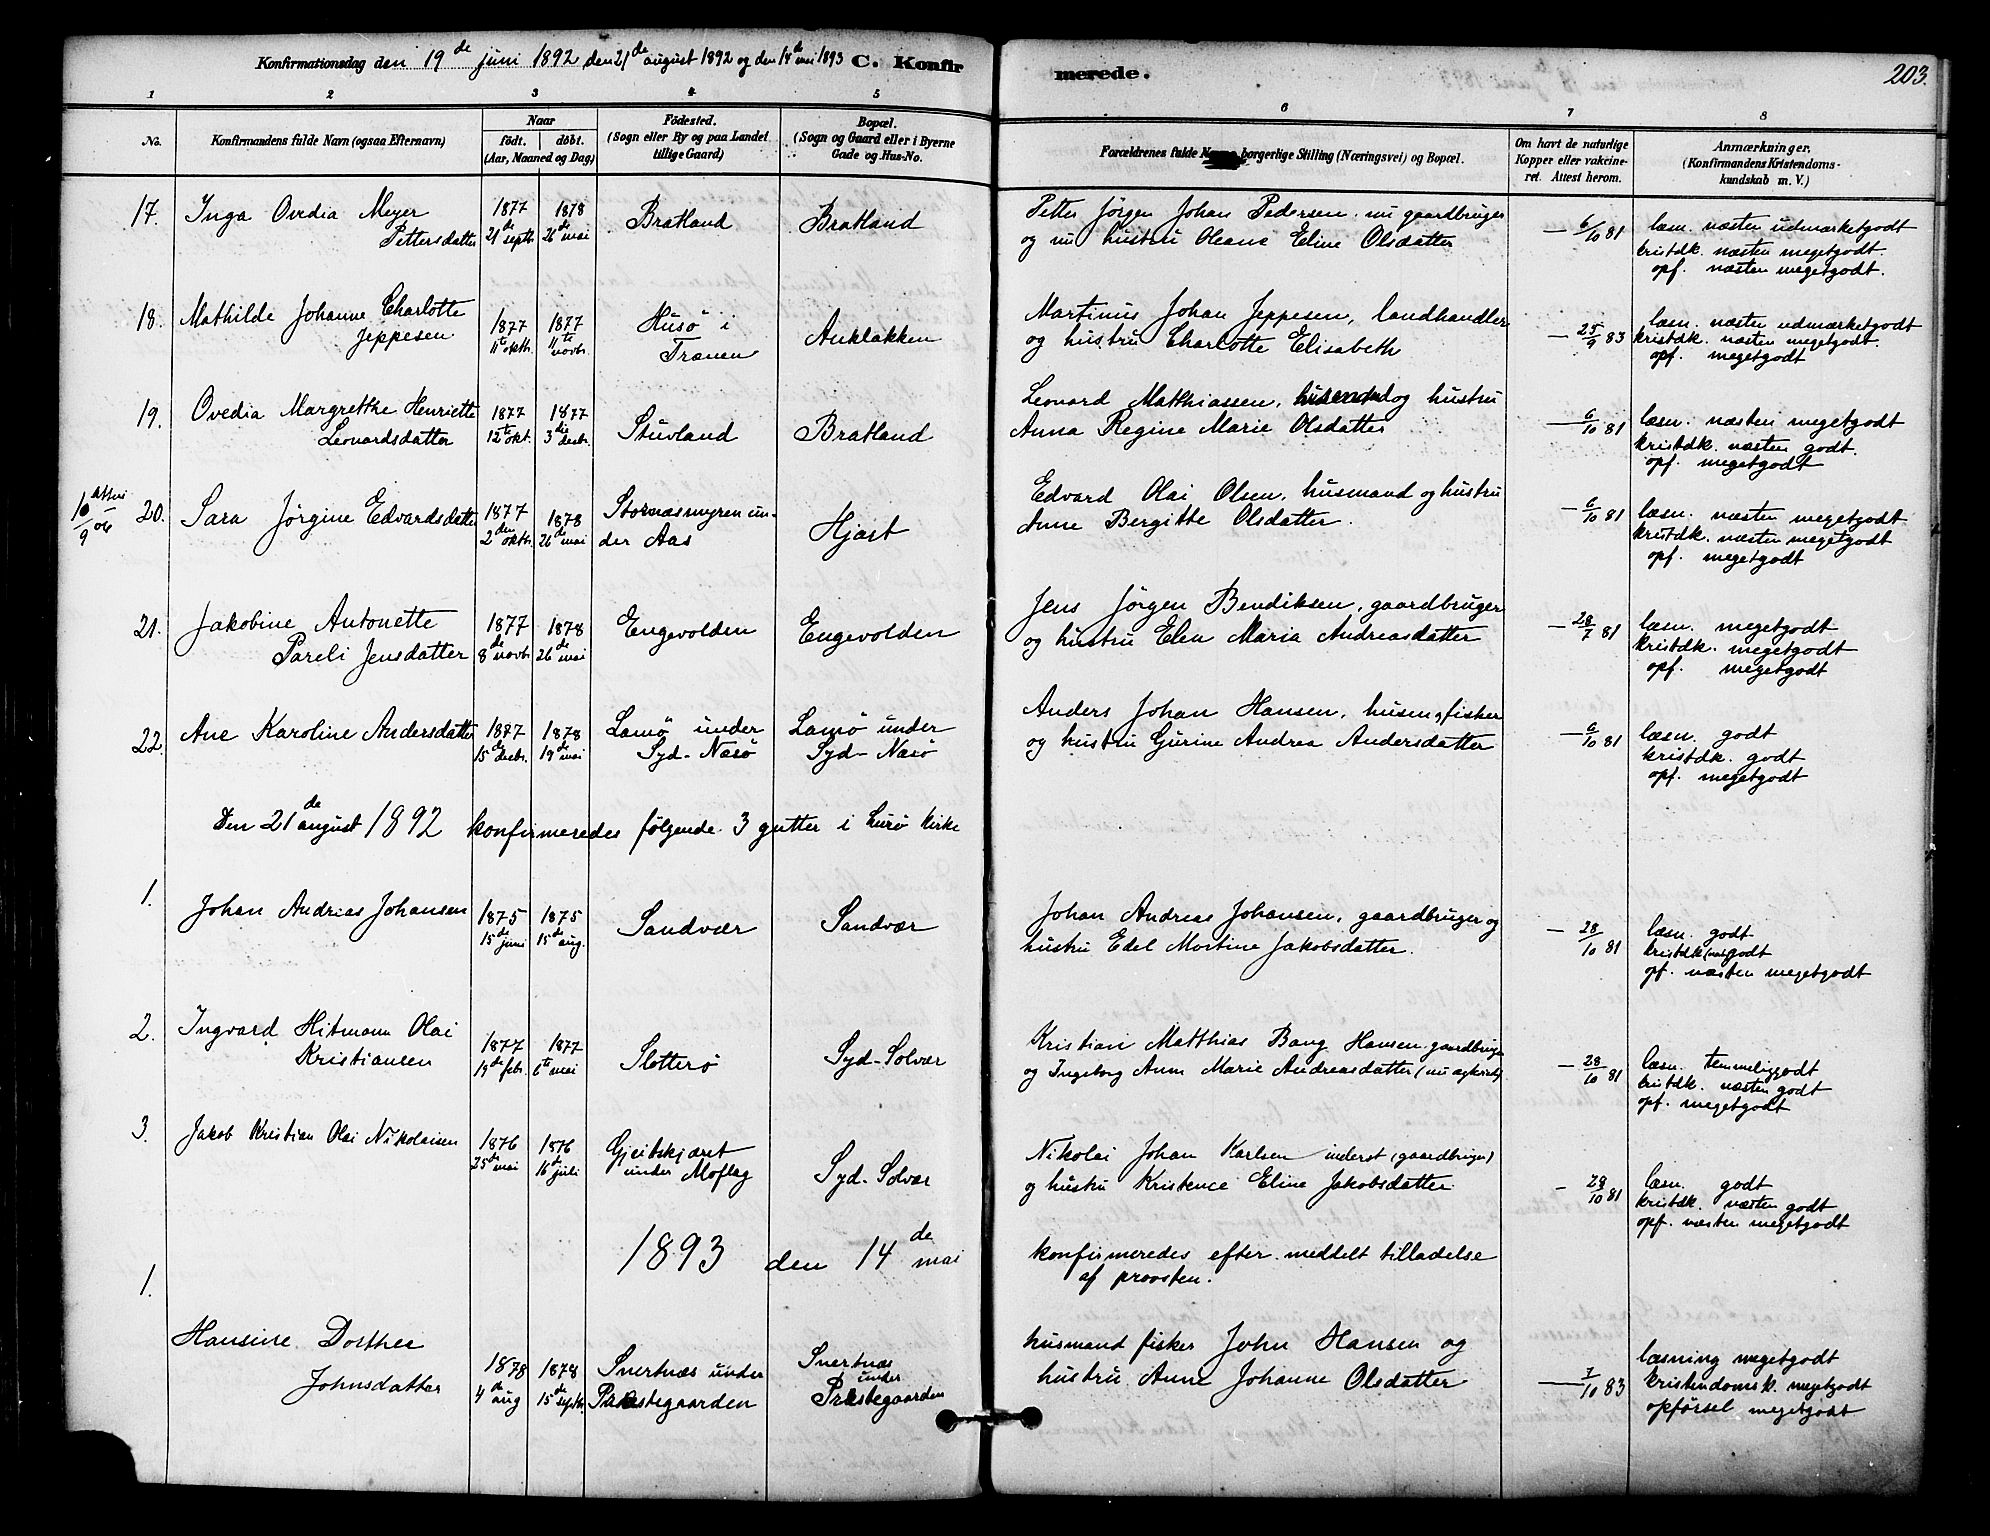 Konfirmationsdag den 19de juni 1892 den 21de august 1892 og den 14de mai 1893 C. Konfirmerede. 203.
1 2 3 4 5 6 7 8
No. Konfirmandens fulde Navn (ogsaa Efternavn) Naar födt. döbt. (Aar, Maaned og Dag) Födested. (Sogn eller By og paa Landet tillige Gaard) Bopæl. (Sogn og Gaard eller i Byerne Gade og Hus-No. Forældrenes fulde borgerlige Stilling (Næringsvei) og Bopæl. Om havt de naturlige Kopper eller vakcineret. Attest herom. Anmærkninger. (Konfirmandens Kristendomskundskab m. V.)
17. Inga Ovedia Meyer Pettersdatter 1877 21de septb. 1878 26de mai Bratland Bratland
Petter Jörgen Johan Pedersen nu gaardbruger
og nu hustru Oleane Eline Olsdatter
— 6/10 81
læsn. næsten udmærketgodt
kristdk. næsten megetgodt.
opf. næsten megetgodt.
18. Mathilde Johanne Charlotte Jeppesen 1877 11te oktbr. 1877 11te novbr. Husö i Trænen Auklakken
Martinus Johan Jeppesen, landhandler
og hustru Charlotte Elisabeth
— 25/9 83
læsn. næsten udmærketgodt
kristdk. næsten megetgodt.
opf. megetgodt
19. Ovedia Margrethe Henriette Leonardsdatter 1877 12te okt. 1877 3die decbr. Stuvland Bratland
Leonard Matthiassen, husmand og hustru
Anna Regine Marie Olsdatter
— 6/10 81
læsn. næsten megetgodt
kristdk. næsten godt.
opf. megetgodt
10/9 06
20. Sara Jørgine Edvardsdatter 1877 2den oktbr. 1878 26de mai Stornæsmyren under Aas Hjart
Edvard Olai Olsen, husmand og hustru
Anne Bergitte Olsdatter.
— 6/10 81
læsn. næsten megetgodt
kristdk. næsten megetgodt
opf. megetgodt
21. Jakobine Antonette Pareli Jensdatter 1877 8de novbr. 1878 26de mai Engevolden Engevolden
Jens Jørgen Bendiksen, gaardbruger
og hustru Elen Maria Andreasdatter
— 28/7 81
læsn. megetgodt
kristdk. megetgodt
opf. megetgodt
22. Ane Karoline Andersdatter 1877 15de decbr. 1878 19de mai Lamø under Syd-Næsø Lamø under Syd-Næsø
Anders Johan Hansen, husm. fisker
og hustru Gurine Andrea Andersdatter
— 6/10 81
læsn. godt
kristdk. godt
opf. megetgodt
Den 21de august 1892 konfirmeredes følgende 3 gutter i Lurø kirke
1. Johan Andreas Johansen 1875 15de juni 1875 15de aug. Sandvær Sandvær
Johan Andreas Johansen, gaardbruger og
hustru Edel Martine Jakobsdatter.
— 28/10 81
læsn. godt
kristdk. godt
opf. næsten megetgodt
2. Ingvard Hitmann Olai Kristiansen 1877 19de febr. 1877 6te mai Slotterö Syd-Solvær
Kristian Matthias Bang Hansen gaardbruger
og Ingeborg Anne Marie Andreasdatter
— 28/10 81
læsn. temmeliggodt
kristdk. næsten godt
opf. megetgodt
3. Jakob Kristian Olai Nikolaisen 1876 25de mai 1876 16de juli Gjeitskjæret under Moflag Syd-Solvær
Nikolai Johan Karlsen inderst (gaardbruger)
og hustru Kristence Eline Jakobsdatter
— 28/10 81
læsn. godt
kristdk. næsten godt
opf. næsten megetgodt
1893 den 14de mai konfirmeredes efter meddelt tilladelse
af provsten.
1. Hansine Dorthea Johnsdatter 1878 4de aug 1878 15de septbr. Snertnæs under Præstegaarden Snertnæs under Præstegaarden
husmand fisker John Hansen og
hustru Anne Johanne Olsdatter
— 7/10 83
læsning megetgodt
kristendomsk. megetgodt
opførsel megetgodt